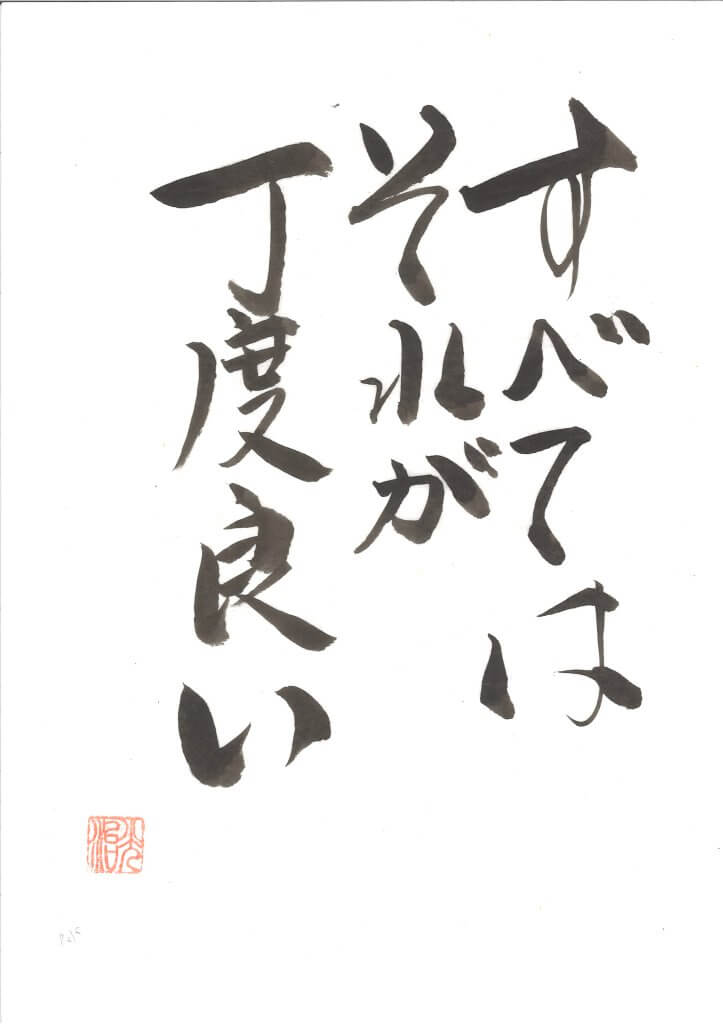 すべては
それが
丁度良い